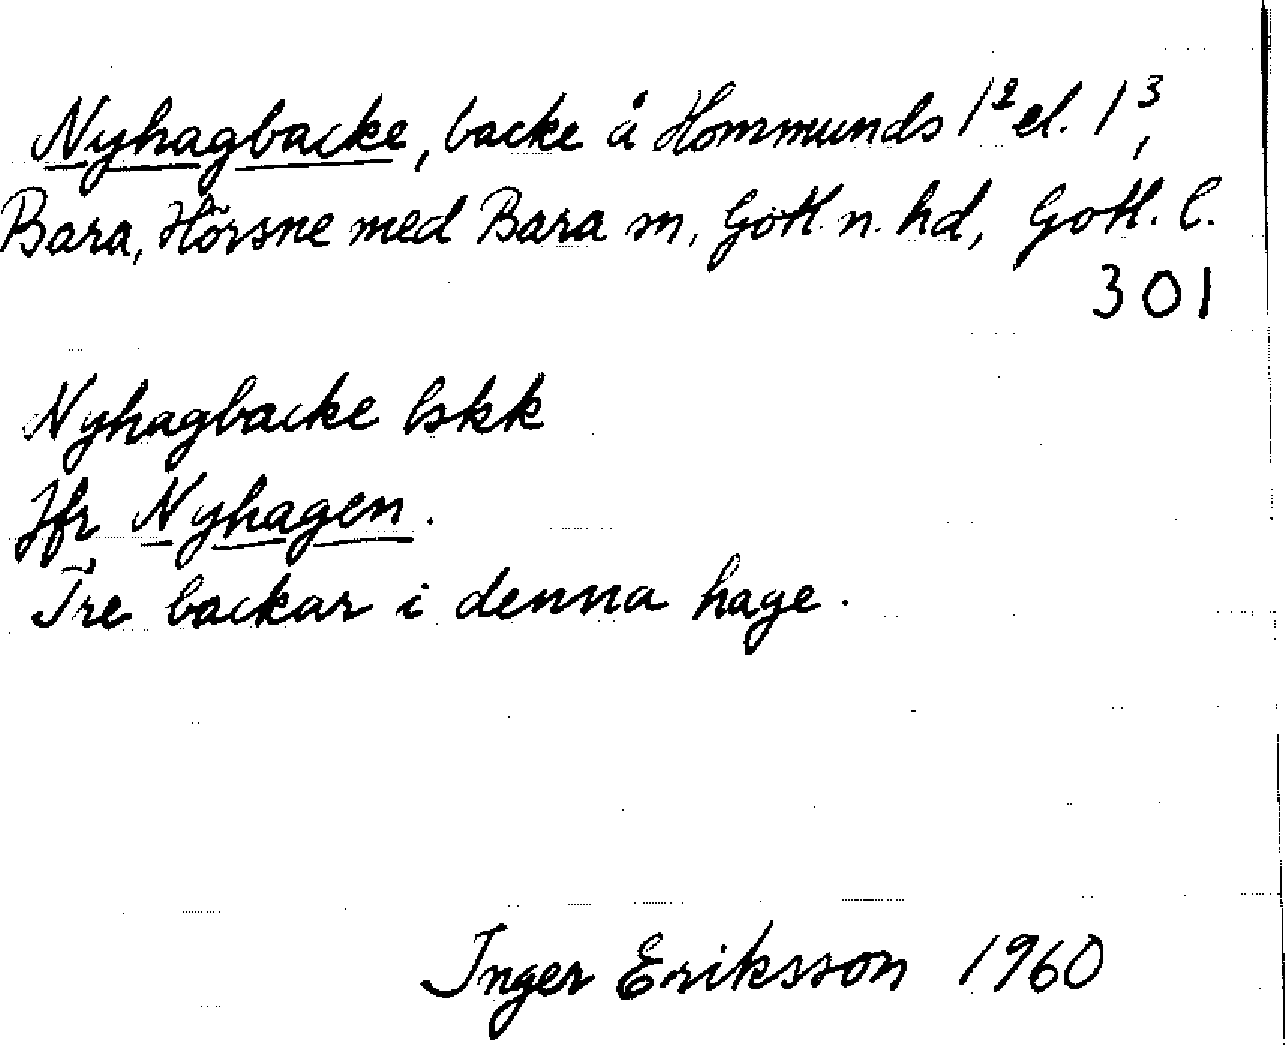 Nyhagbacke, backe å Hommunds 1² el. 1³,
Bara, Hörsne med Bara sn, Gotl. n. hd, Gotl. l.
301
Nyhagbacke bskk
Jfr Nyhagen.
Tre backar i denna hage.
Inger Eriksson 1960